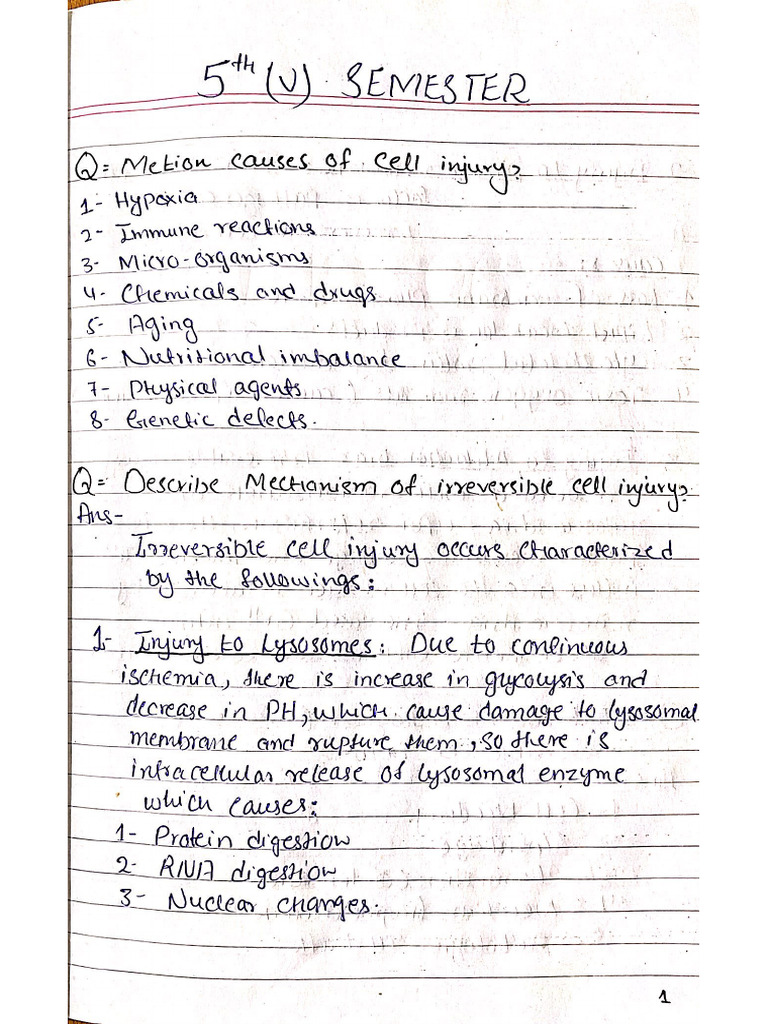 5th (V) SEMESTER
Q= Metion causes of cell injury?
1- Hypoxia
2- Immune reactions
3- Micro-organisms
4- Chemicals and drugs
5- Aging
6- Nutritional imbalance
7- Physical agents
8- Genetic defects.
Q= Describe Mechanism of irreversible cell injury?
Ans-
Irreversible cell injury occurs characterized
by the followings:
1- Injury to Lysosomes: Due to continuous
ischemia, there is increase in glycolysis and
decrease in PH, which cause damage to lysosomal
membrane and rupture them, so there is
intracellular release of lysosomal enzyme
which causes:
1- Protein digestion
2- RNA digestion
3- Nuclear changes.
1